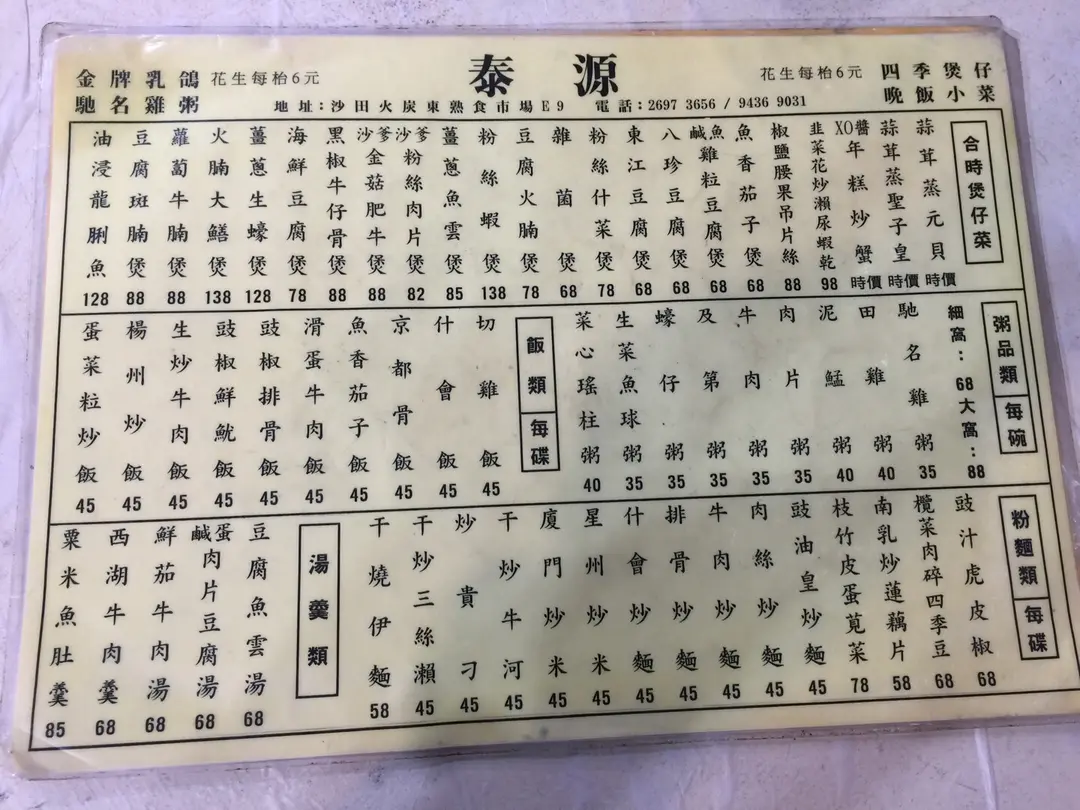 泰源
金牌乳鴿 花生每枱6元
花生每枱6元 四季煲仔
馳名雞粥 地址：沙田火炭東熟食市場E9 電話：2697 3656 / 9436 9031 晚飯小菜
合時煲仔菜
蒜茸蒸元貝 時價
蒜茸蒸聖子皇 時價
XO醬年糕炒蟹 時價
韭菜花炒瀨尿蝦乾 98
椒鹽腰果吊片絲 88
魚香茄子煲 68
鹹魚雞粒豆腐煲 68
八珍豆腐煲 68
東江豆腐煲 68
粉絲什菜煲 78
雜菌煲 68
豆腐火腩煲 78
粉絲蝦煲 138
薑蔥魚雲煲 85
沙爹粉絲肉片煲 82
沙爹金菇肥牛煲 88
黑椒牛仔骨煲 88
海鮮豆腐煲 78
薑蔥生蠔煲 128
火腩大鱔煲 138
蘿蔔牛腩煲 88
豆腐斑腩煲 88
油浸龍脷魚 128
粥品類 每碗
細窩：68大窩：88
馳名雞粥 35
田雞粥 40
泥鯭粥 40
肉片粥 35
牛肉粥 35
及第粥 35
蠔仔粥 35
生菜魚球粥 35
菜心瑤柱粥 40
飯類 每碟
切雞飯 45
什會飯 45
京都骨飯 45
魚香茄子飯 45
滑蛋牛肉飯 45
豉椒排骨飯 45
豉椒鮮魷飯 45
生炒牛肉飯 45
楊州炒飯 45
蛋菜粒炒飯 45
粉麵類 每碟
豉汁虎皮椒 68
欖菜肉碎四季豆 68
南乳炒蓮藕片 58
枝竹皮蛋莧菜 78
豉油皇炒麵 45
肉絲炒麵 45
牛肉炒麵 45
排骨炒麵 45
什會炒麵 45
星州炒米 45
廈門炒米 45
干炒牛河 45
炒貴刁 45
干炒三絲瀨 45
干燒伊麵 58
湯羹類
豆腐魚雲湯 68
鹹蛋肉片豆腐湯 68
鮮茄牛肉湯 68
西湖牛肉羹 68
粟米魚肚羹 85